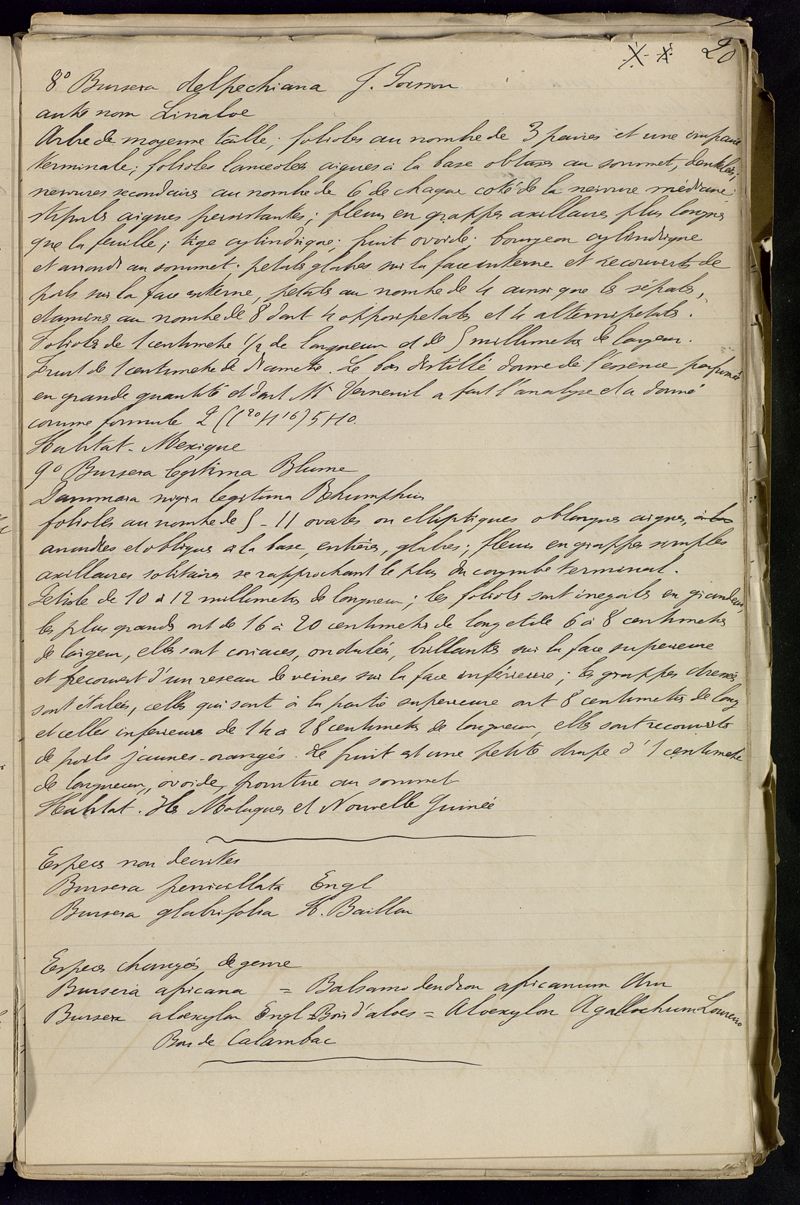 X X 20
8° Bursera delpechiana J. Poisson
autre nom Linaloe
Arbre de moyenne taille; folioles au nombre de 3 paires et une impaire
terminale; folioles lanceolées aigues à la base obtuses au sommet, dentelées,
nervures secondaires au nombre de 6 de chaque coté de la nervure médiane;
stipules aigues persistantes; fleurs en grappes axillaires plus longues
que la feuille; tige cylindrique; fruit ovoide. bourgeon cylindrique
et arrondi au sommet. petales glabres sur la face interne et recouverts de
poils sur la face externe, petales au nombre de 4 ainsi que les sépales,
etamines au nombre de 8 dont 4 oppositipetales et 4 alternipetales.
Folioles de 1 centimetre 1/2 de longueur et de 5 millimetres de largeur.
Fruit de 1 centimetre de diametre. Le bois distillé donne de l'essence parfumée
en grande quantité et dont Mr Verneuil a fait l'analyse et a donné
comme formule 2 (C20 H16) 5 HO.
Habitat. Mexique
9° Bursera legitima Blume
Dammara nigra legitima Rhumphius
folioles au nombre de 5-11 ovales ou elliptiques oblongues aigues, à la
arrondies et obliques à la base, entières, glabres; fleurs en grappes simples
axillaires solitaires se rapprochant le plus du corymbe terminal.
Petiole de 10 à 12 millimetres de longueur; les folioles sont inegales en grandeur,
les plus grandes ont de 16 à 20 centimetres de long et de 6 à 8 centimetres
de largeur, elles sont coriaces, ondulées, brillantes sur la face superieure
et recouvert d'un reseau de veines sur la face inférieure; les grappes
sont étalées, celles qui sont à la partie superieure ont 8 centimetres de long
et celles inferieures de 14 à 18 centimetres de longueur, elles sont recouvertes
de poils jaunes-orangés. Le fruit est une petite drupe d'1 centimetre
de longueur, ovoide, pointue au sommet
Habitat. Iles Moluques et Nouvelle Guinée
Especes non decrites
Bursera penicillata Engl
Bursera glabrifolia H. Baillon
Especes changées de genre
Bursera africana = Balsamodendron africanum Arn
Bursera aloexylon Engl = Bois d'aloes = Aloexylon Agallochum Loureiro
Bois de Calambac